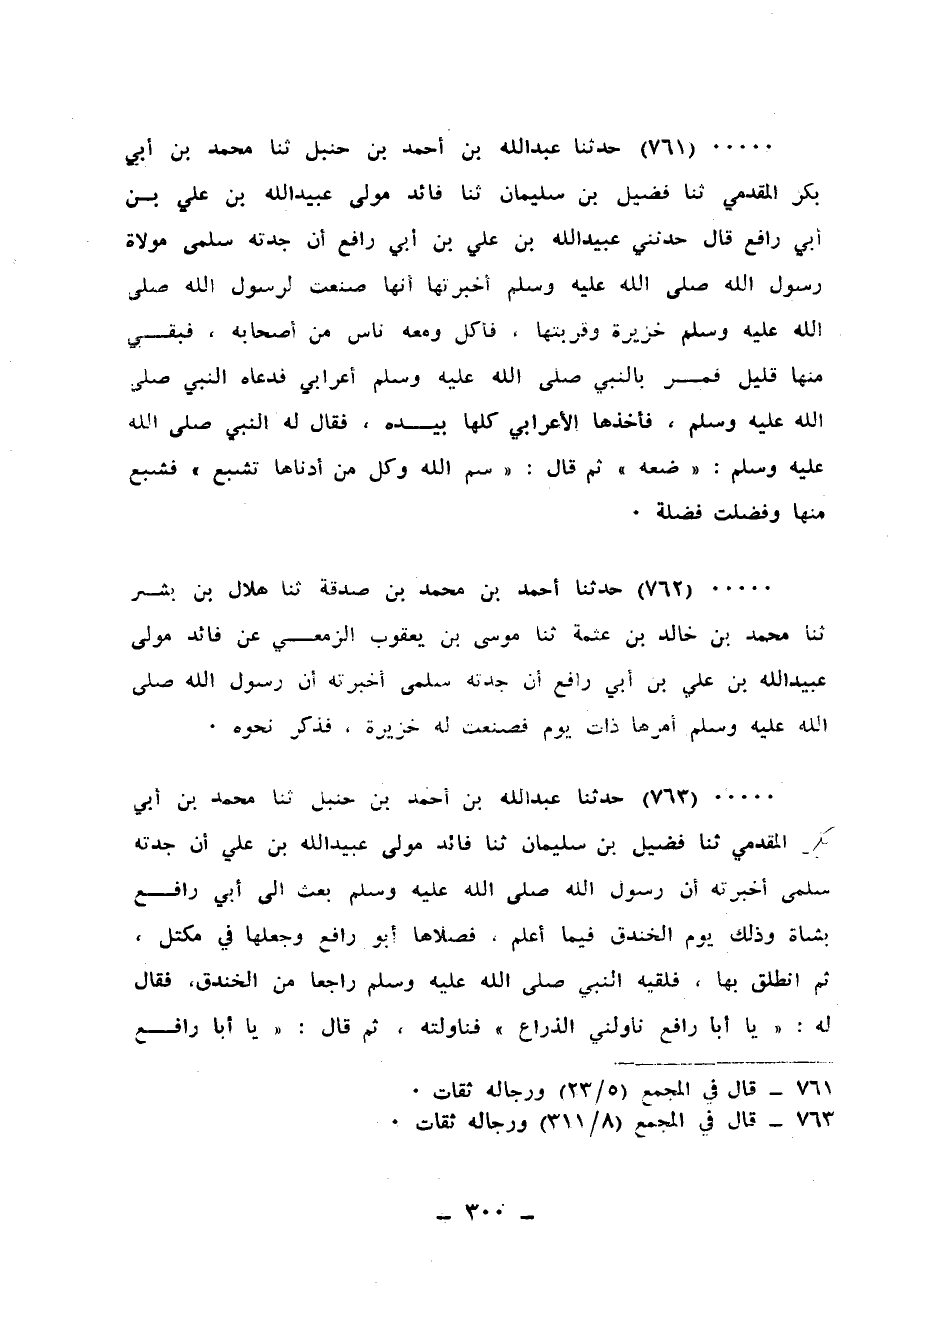 ..... (٧٦١) حدثنا عبدالله بن أحمد بن حنبل ثنا محمد بن أبي
بكر المقدمي ثنا فضيل بن سليمان ثنا فائد مولى عبيدالله بن علي بن
أبي رافع قال حدثني عبيدالله بن علي بن أبي رافع أن جدته سلمى مولاة
رسول الله صلى الله عليه وسلم أخبرتها أنها صنعت لرسول الله صلى
الله عليه وسلم خزيرة وقربتها ، فأكل ومعه ناس من أصحابه ، فبقي
منها قليل فمر بالنبي صلى الله عليه وسلم أعرابي فدعاه النبي صلى
الله عليه وسلم ، فأخذها الأعرابي كلها بيده ، فقال له النبي صلى الله
عليه وسلم : « ضعه » ثم قال : « سم الله وكل من أدناها تشبع » فشبع
منها وفضلت فضلة .
..... (٧٦٢) حدثنا أحمد بن محمد بن صدقة ثنا هلال بن بشر
ثنا محمد بن خالد بن عثمة ثنا موسى بن يعقوب الزمعي عن فائد مولى
عبيدالله بن علي بن أبي رافع أن جدته سلمى أخبرته أن رسول الله صلى
الله عليه وسلم أمرها ذات يوم فصنعت له خزيرة ، فذكر نحوه .
..... (٧٦٣) حدثنا عبدالله بن أحمد بن حنبل ثنا محمد بن أبي
بكر المقدمي ثنا فضيل بن سليمان ثنا فائد مولى عبيدالله بن علي أن جدته
سلمى أخبرته أن رسول الله صلى الله عليه وسلم بعث الى أبي رافع
بشاة وذلك يوم الخندق فيما أعلم ، فصلاها أبو رافع وجعلها في مكتل ،
ثم انطلق بها ، فلقيه النبي صلى الله عليه وسلم راجعا من الخندق، فقال
له : « يا أبا رافع ناولني الذراع » فناولته ، ثم قال : « يا أبا رافع
٧٦١ ـ قال في المجمع (٢٣/٥) ورجاله ثقات .
٧٦٣ ـ قال في المجمع (٣١١/٨) ورجاله ثقات .
ـ ٣٠٠ ـ